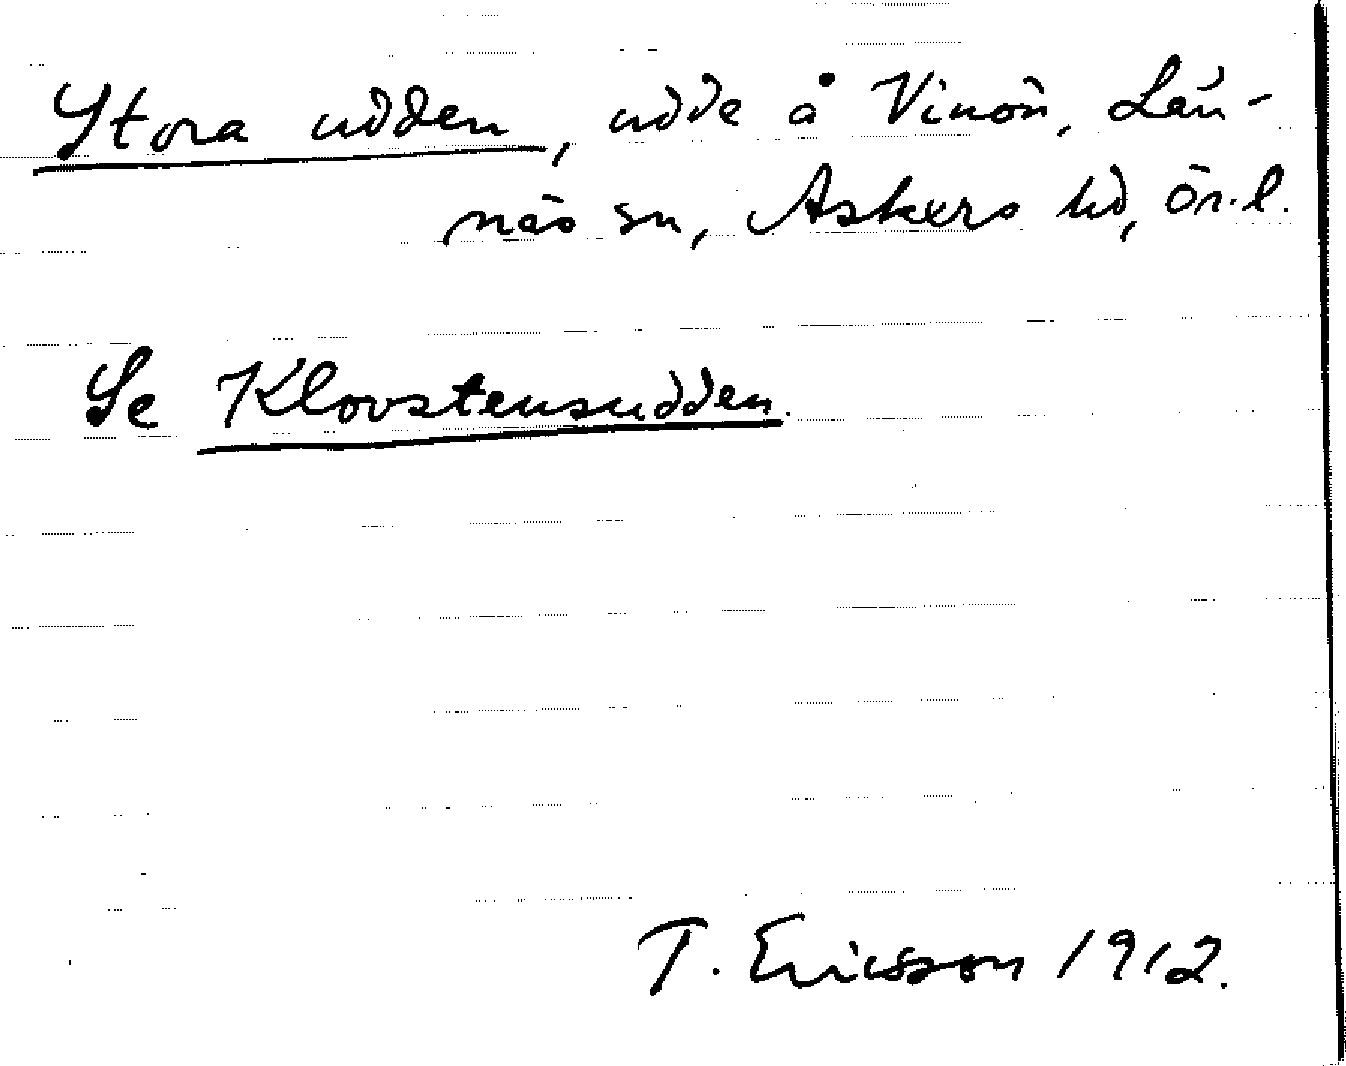 Stora udden, udde å Vinön, Län-
näs sn, Askers hd, Ör. l.
Se Klovstensudden.
T. Ericsson 1912.